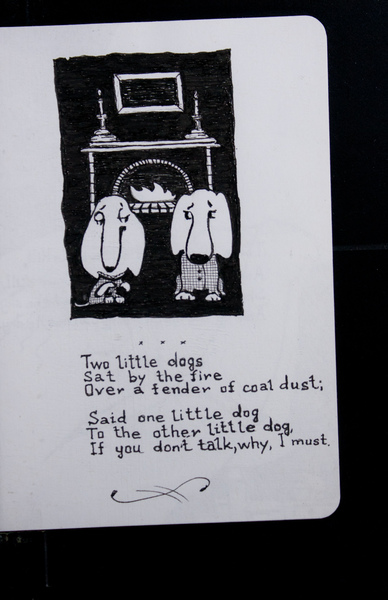 x x x
Two little dogs
Sat by the fire
Over a fender of coal dust;
Said one little dog
To the other little dog,
If you don't talk, why, I must.